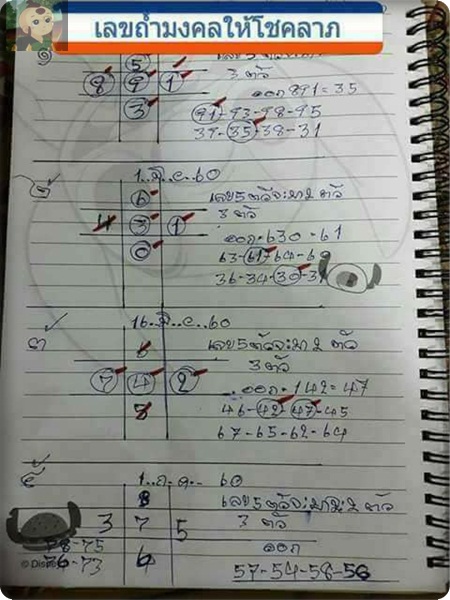 เลขถ้ำมงคลให้โชคลาภ
๑
5 เลข 5 ตัวจะมา 2 ตัว
8 9 1 3 ตัว
3 ออก 891 = 35
91-93-98-95
39-35-38-31
1..มิ..ย..60
๒
6 เลข 5 ตัวจะมา 2 ตัว
4 3 1 3 ตัว
0 ออก.630 = 61
63-61-64-60
36-34-30-31
16..มิ..ย..60
๓
6 เลข 5 ตัวจะมา 2 ตัว
7 4 2 3 ตัว
5 ออก.142 = 47
46-42-47-45
67-65-62-64
1..ก.ค.. 60
๔
8 เลข 5 ตัวจะมา 2 ตัว
3 7 5 3 ตัว
6 ออก
78-75
76-73
57-54-58-56
© Disney